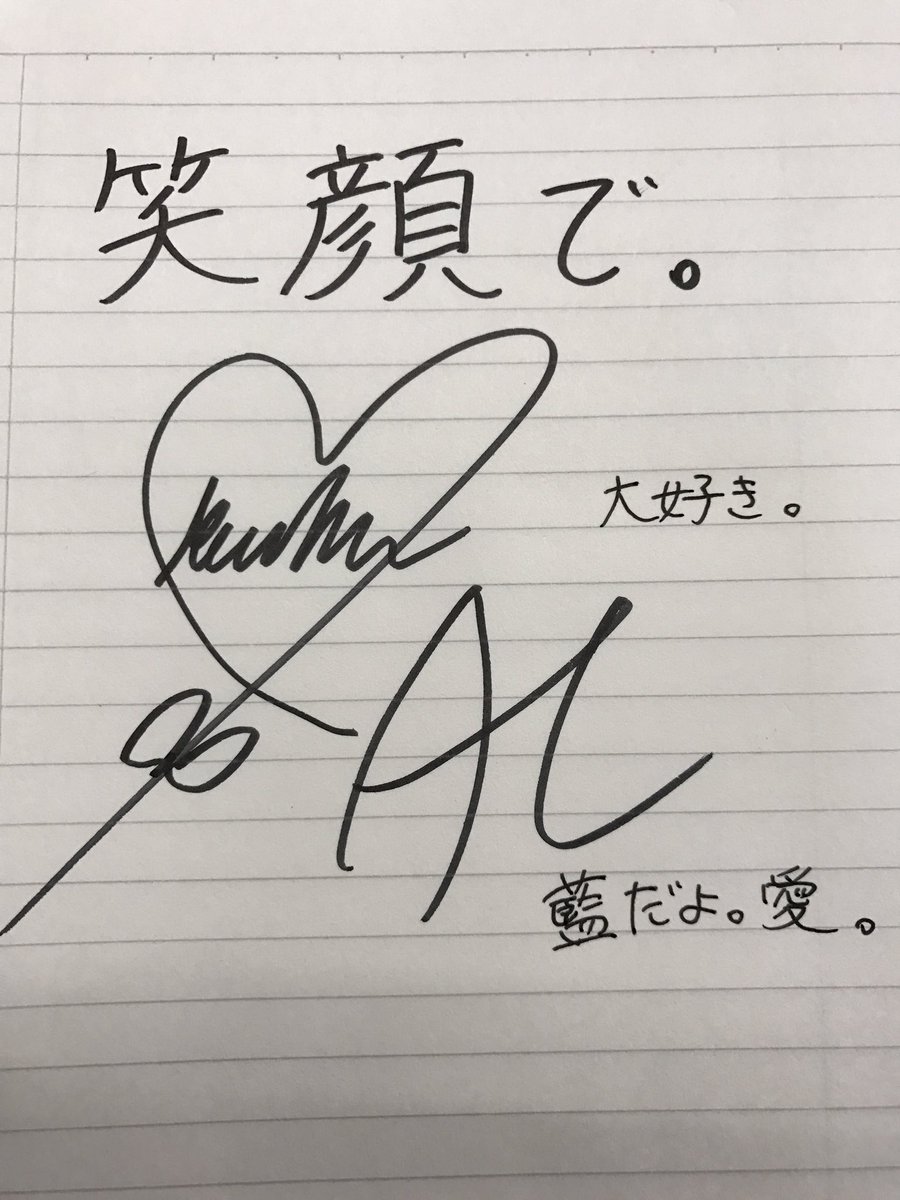 笑顔で。
大好き。
藍だよ。愛。